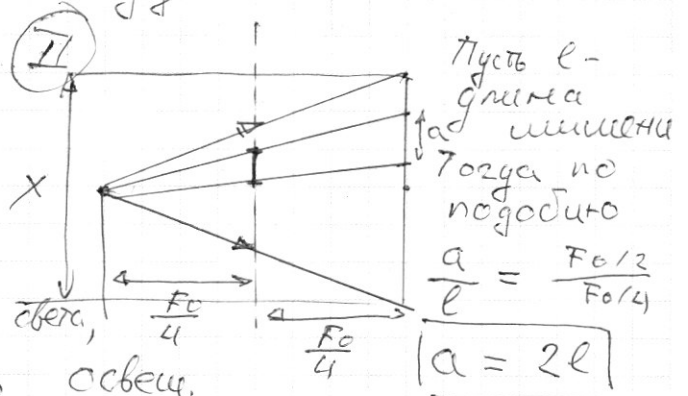 II
Пусть l-
длина
мишени
a
Тогда по
подобию
X
a/l = (F₀/2)/(F₀/4)
F₀/4
F₀/4
света,
a = 2l
освещ.